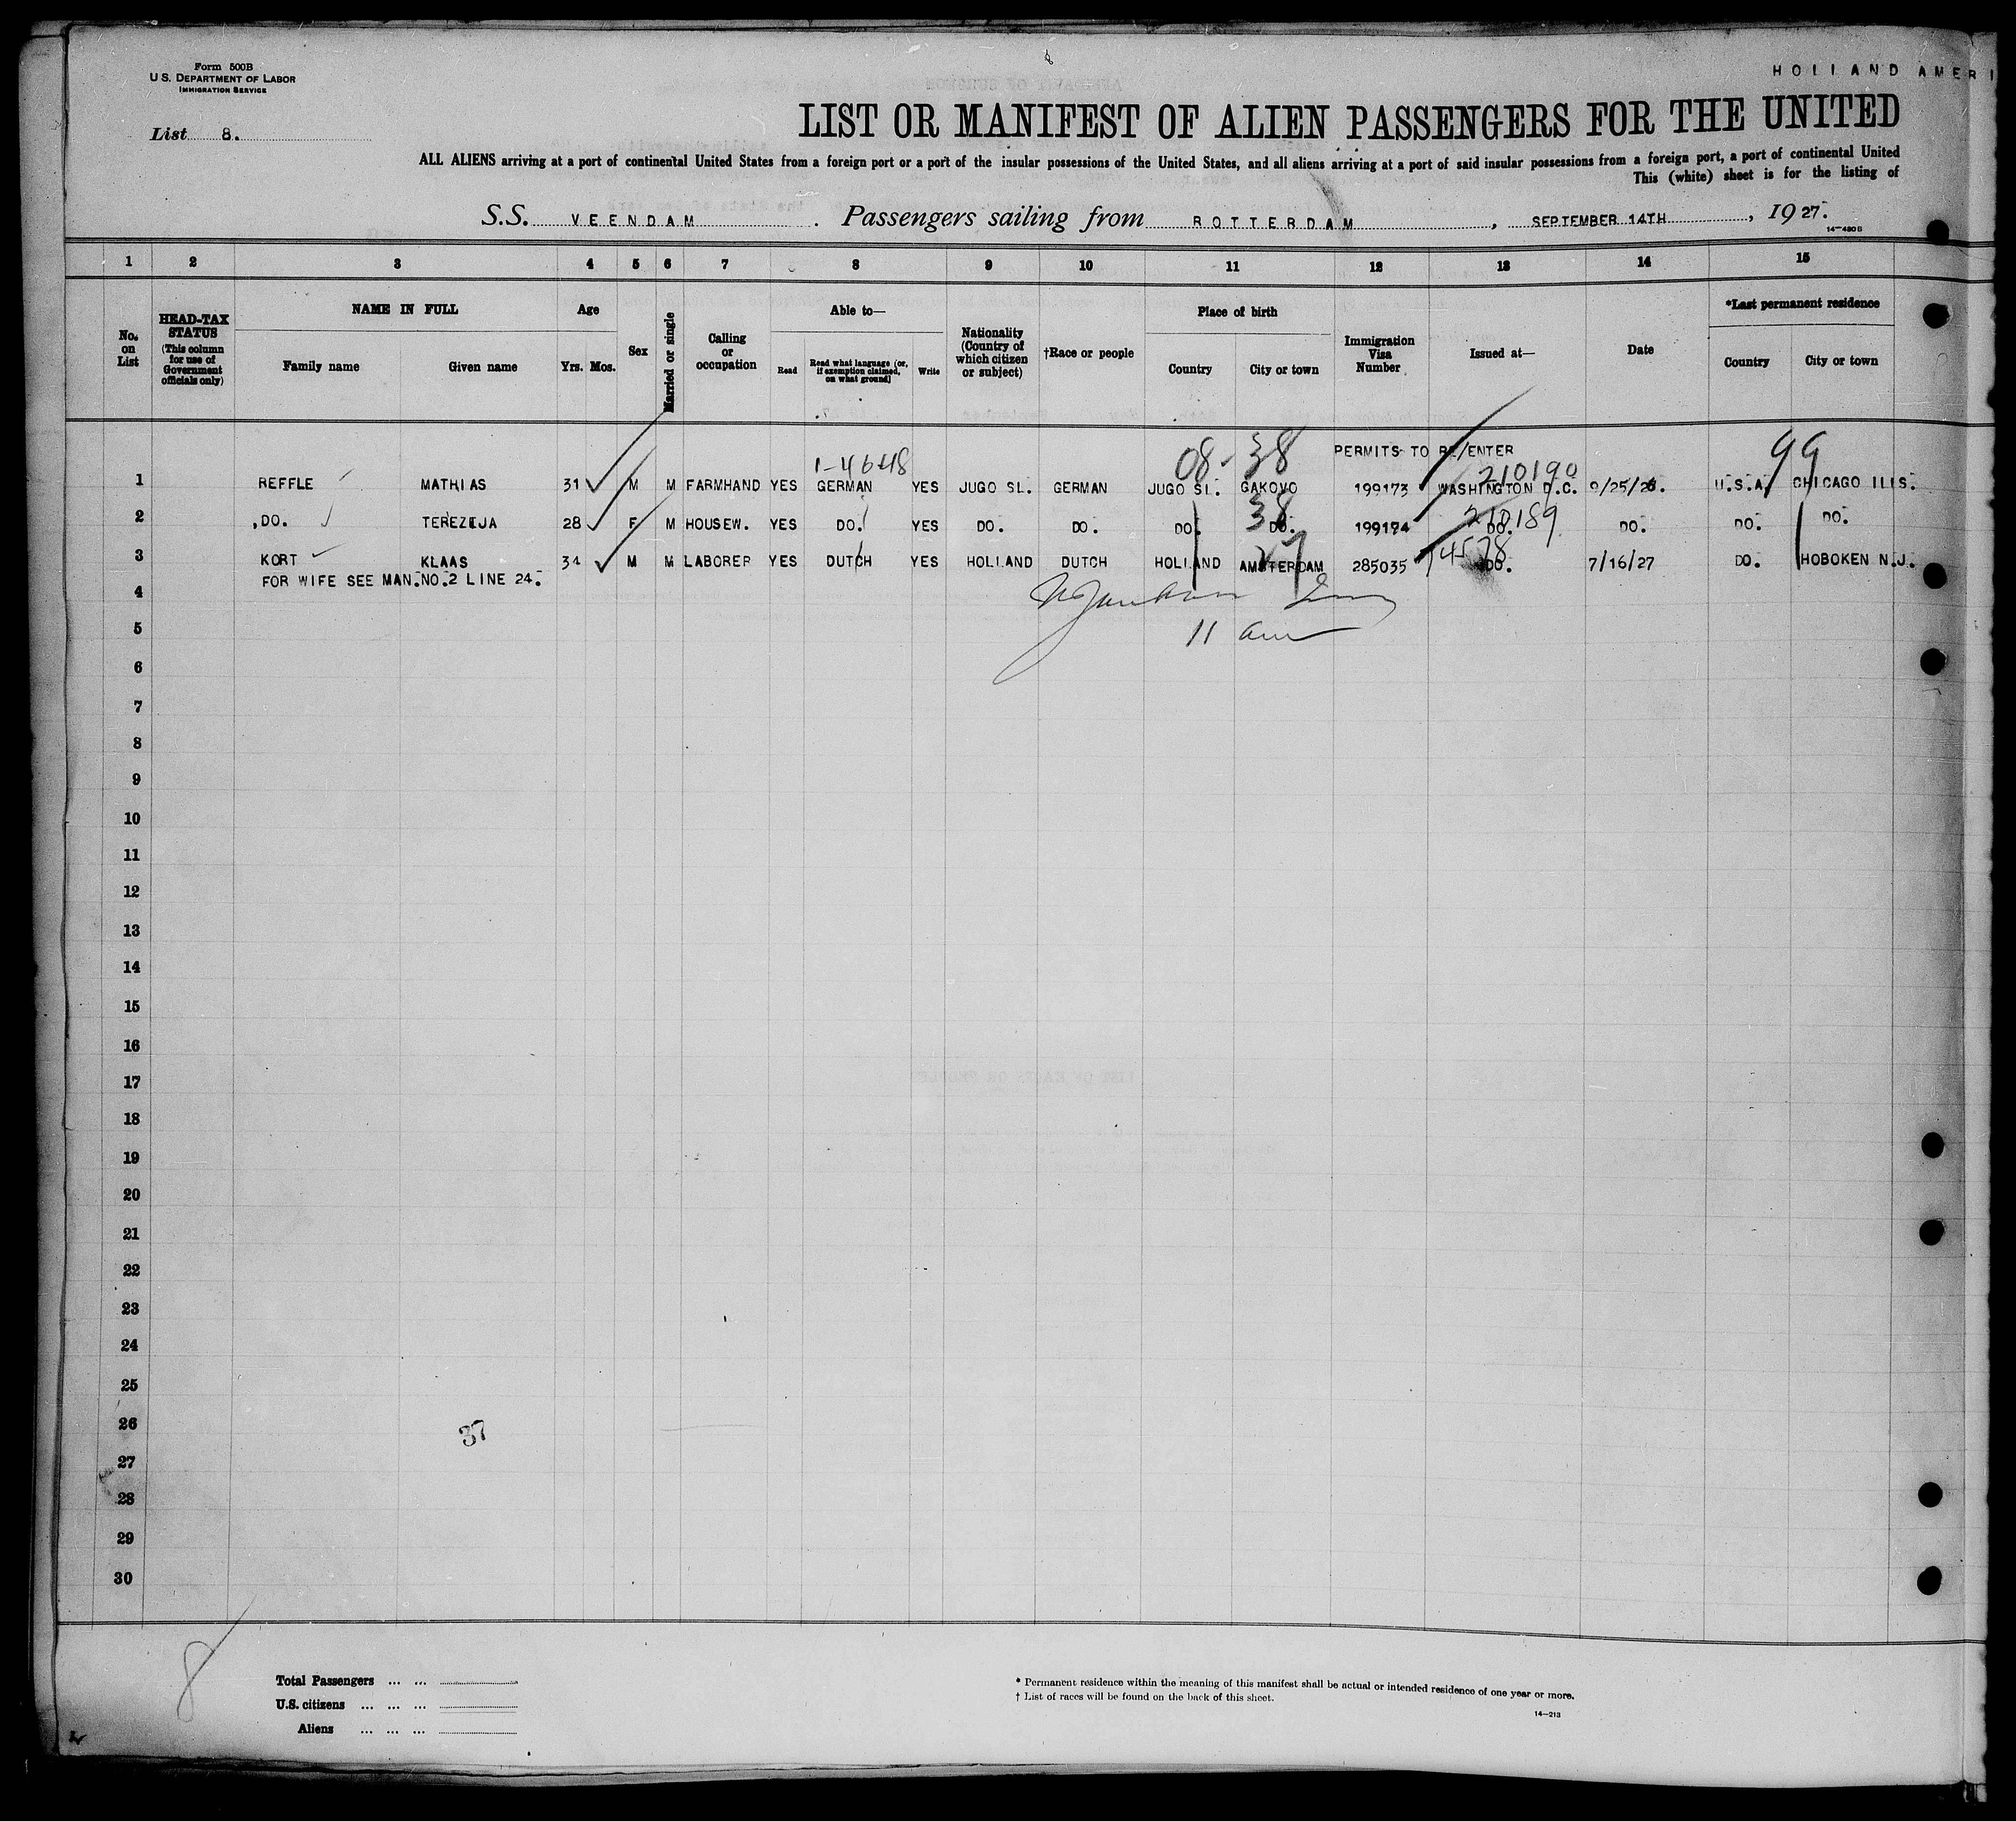 Form 500B
U.S. DEPARTMENT OF LABOR
IMMIGRATION SERVICE
HOLLAND AMERI
List 8.
LIST OR MANIFEST OF ALIEN PASSENGERS FOR THE UNITED
ALL ALIENS arriving at a port of continental United States from a foreign port or a port of the insular possessions of the United States, and all aliens arriving at a port of said insular possessions from a foreign port, a port of continental United
This (white) sheet is for the listing of
S.S. VEENDAM. Passengers sailing from ROTTERDAM, SEPTEMBER 14TH, 1927.
14—480 B
1 2 3 4 5 6 7 8 9 10 11 12 13 14 15
No. on List
HEAD-TAX STATUS (This column for use of Government officials only)
NAME IN FULL
Family name Given name
Age
Yrs. Mos.
Sex
Married or single
Calling or occupation
Able to—
Read Read what language (or, if exemption claimed, on what ground) Write
Nationality (Country of which citizen or subject)
†Race or people
Place of birth
Country City or town
Immigration Visa Number
Issued at—
Date
*Last permanent residence
Country City or town
1-4648 08- 38 PERMITS TO RE/ENTER 99
210190
1 REFFLE MATHIAS 31 M M FARMHAND YES GERMAN YES JUGO SL. GERMAN JUGO SL. GAKOVO 199173 WASHINGTON D.C. 9/25/26. U.S.A. CHICAGO ILLS.
38 210189
2 DO. TEREZIJA 28 F M HOUSEW. YES DO. YES DO. DO. DO. DO. 199174 DO. DO. DO. DO.
27
3 KORT KLAAS 34 M M LABORER YES DUTCH YES HOLLAND DUTCH HOLLAND AMSTERDAM 285035 DO. 7/16/27 DO. HOBOKEN N.J.
FOR WIFE SEE MAN.NO.2 LINE 24.
4
11 am
5
6
7
8
9
10
11
12
13
14
15
16
17
18
19
20
21
22
23
24
25
26
37
27
28
29
30
8
Total Passengers ... ...
U.S. citizens ... ... ...
Aliens ... ... ...
* Permanent residence within the meaning of this manifest shall be actual or intended residence of one year or more.
† List of races will be found on the back of this sheet.
14—213